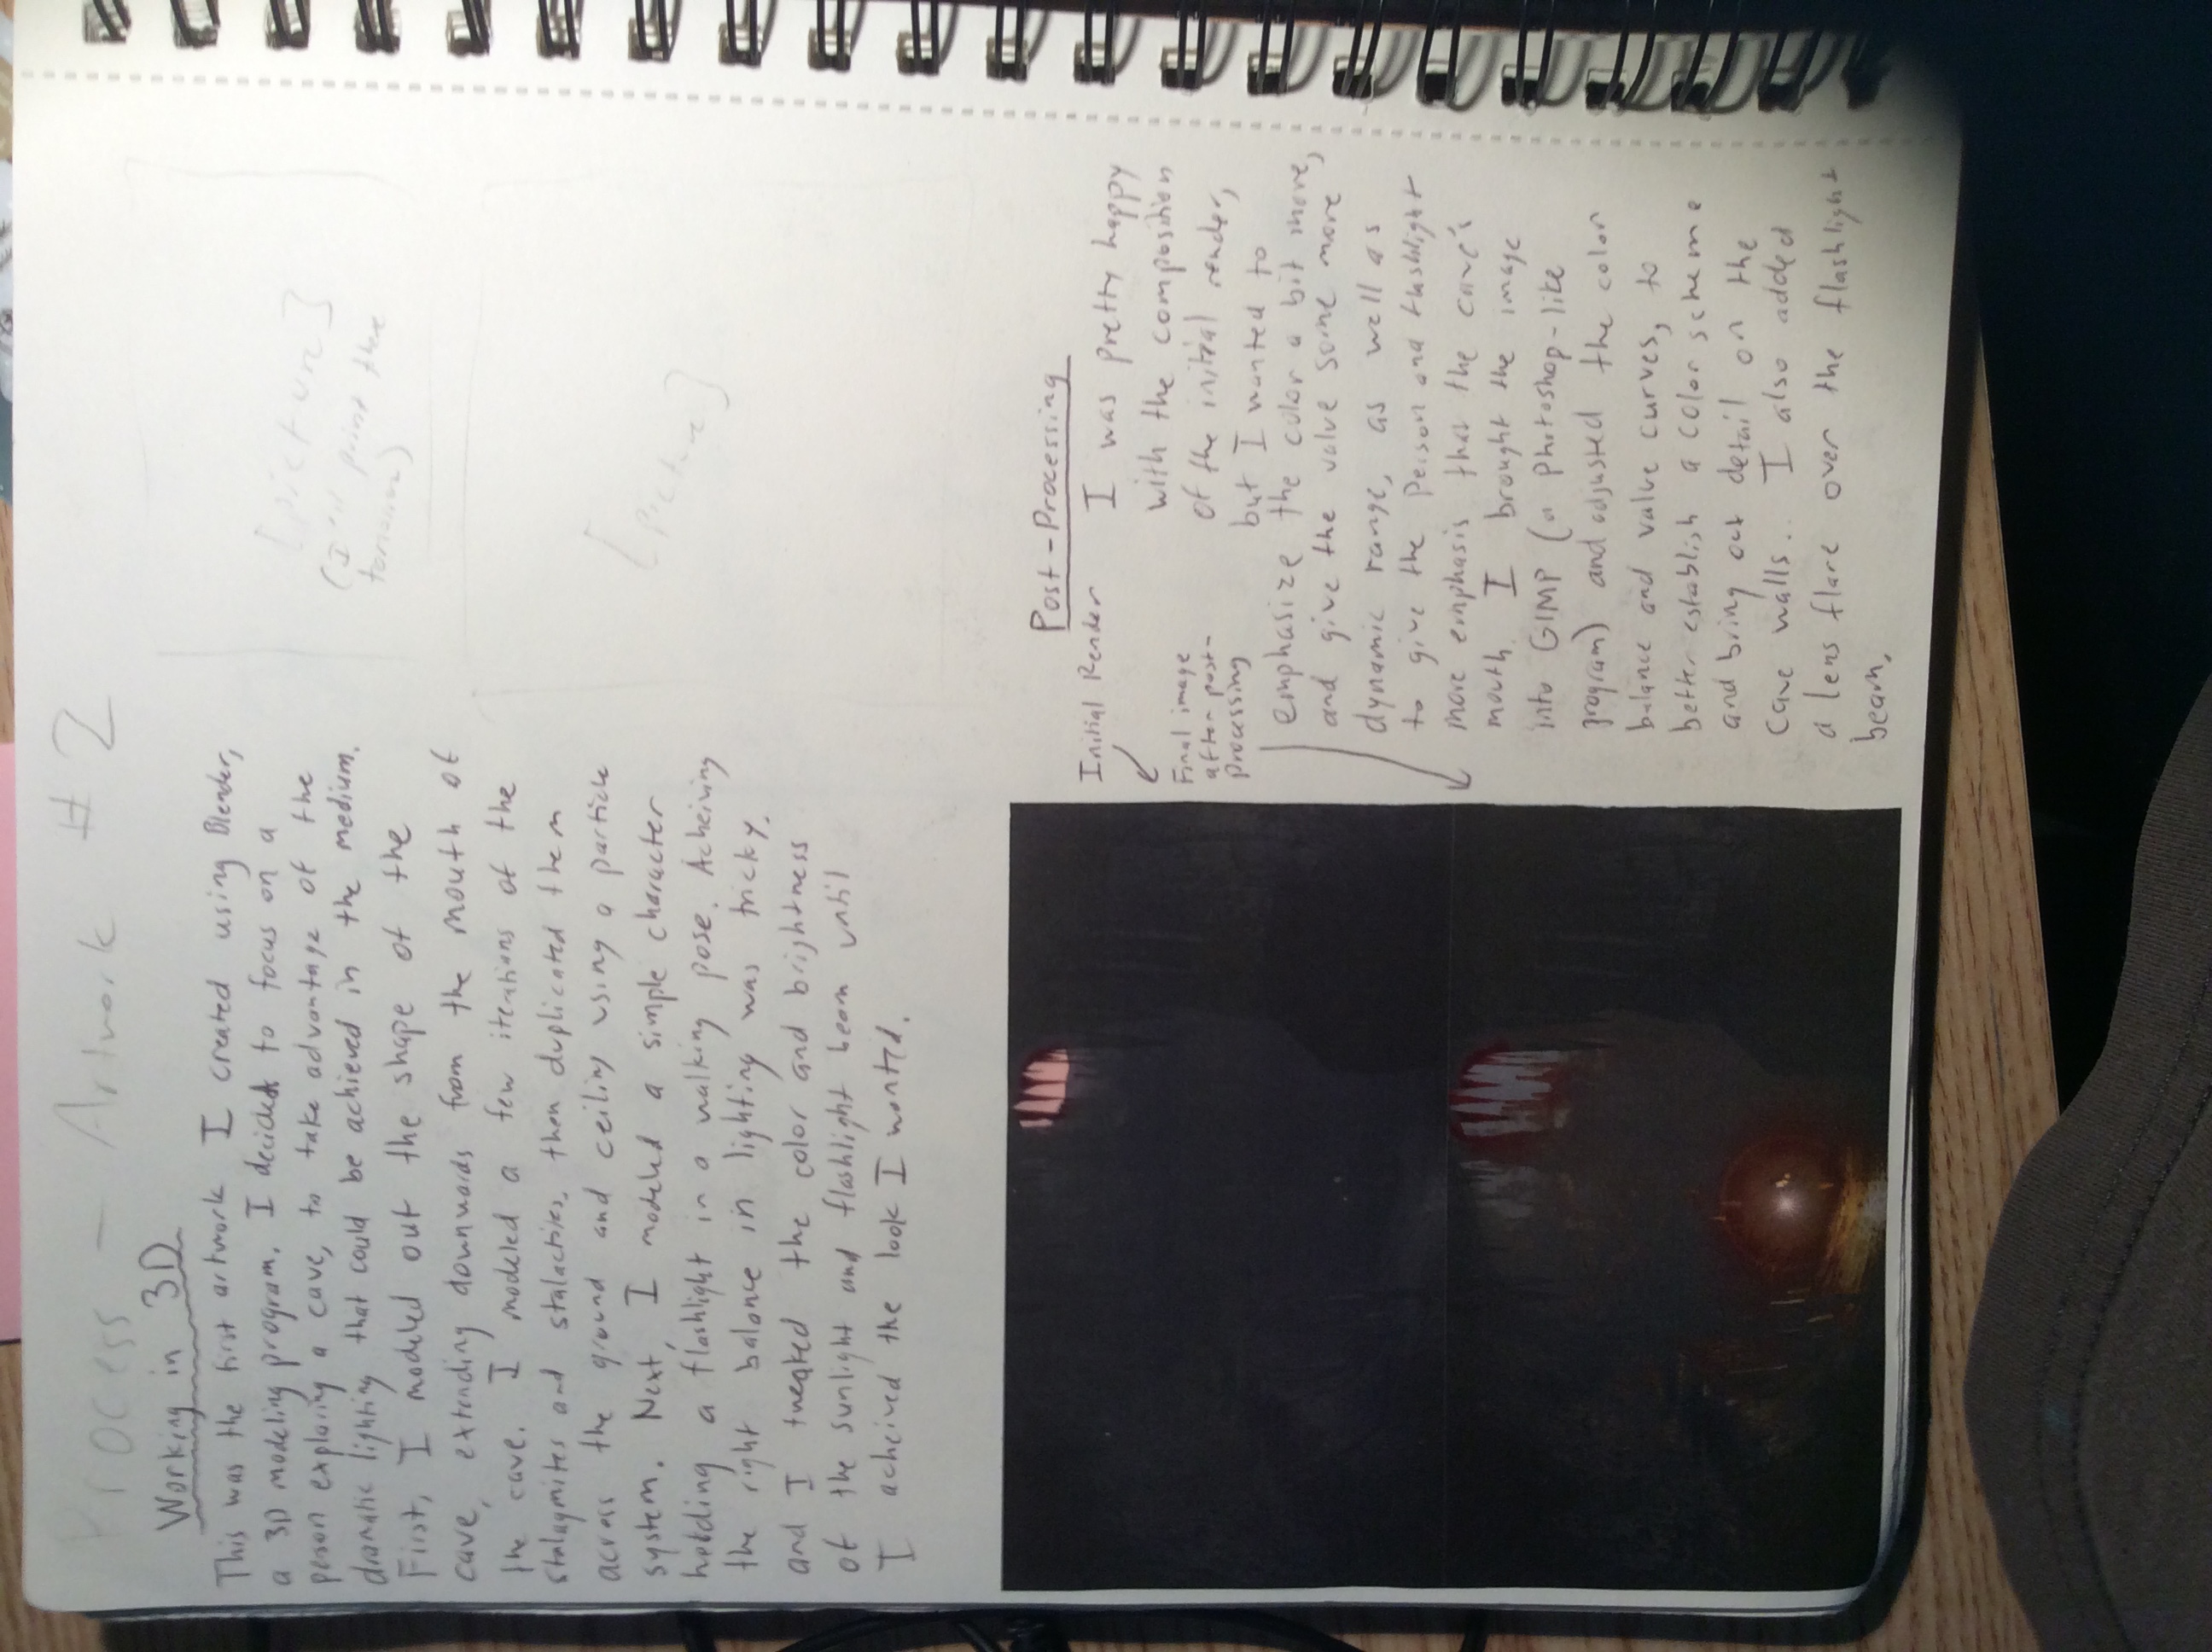 Process - Artwork #2
Working in 3D
This was the first artwork I created using Blender,
a 3D modeling program. I decided to focus on a
person exploring a cave, to take advantage of the
dramatic lighting that could be achieved in the medium.
First, I modeled out the shape of the
cave, extending downwards from the mouth of
the cave. I modeled a few iterations of the
stalagmites and stalactites, then duplicated them
across the ground and ceiling using a particle
system. Next, I modeled a simple character
holding a flashlight in a walking pose. Acheiving
the right balance in lighting was tricky,
and I tweaked the color and brightness
of the sunlight and flashlight beam until
I acheived the look I wanted.
[picture]
(I'll print them
tomorrow)
[picture]
Post-Processing
Initial Render
Final image
after post-
processing
I was pretty happy
with the composition
of the initial render,
but I wanted to
emphasize the color a bit more,
and give the value some more
dynamic range, as well as
to give the person and flashlight
more emphasis that the cave's
mouth. I brought the image
into GIMP (a Photoshop-like
program) and adjusted the color
balance and value curves, to
better establish a color scheme
and bring out detail on the
cave walls. I also added
a lens flare over the flashlight
beam.